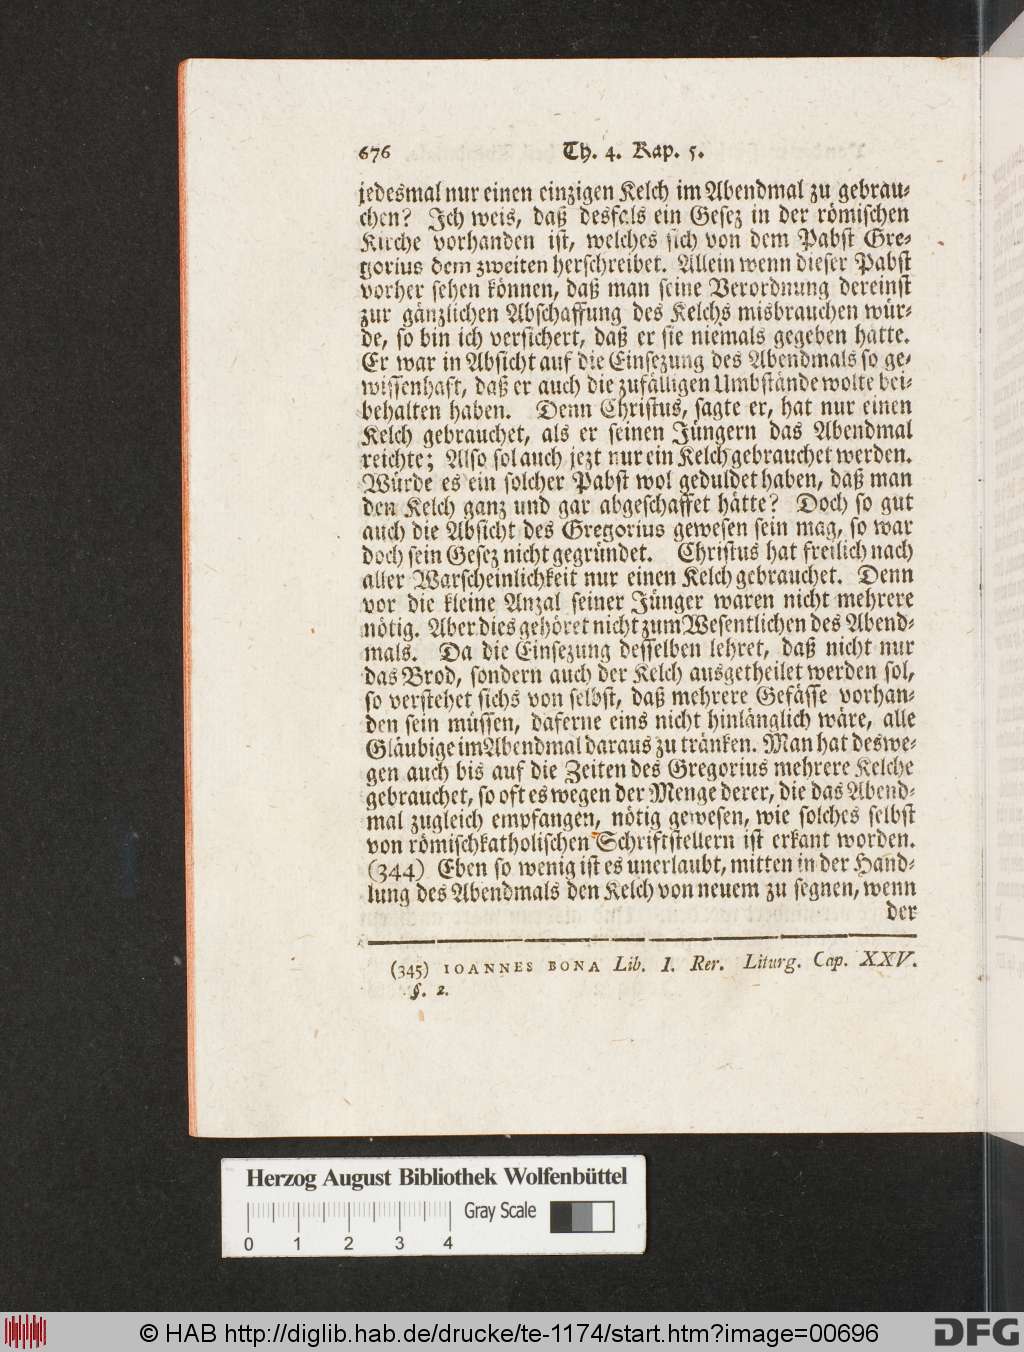 676 Th. 4. Kap. 5.
jedesmal nur einen einzigen Kelch im Abendmal zu gebrau-
chen? Ich weis, daß desfals ein Gesez in der römischen
Kirche vorhanden ist, welches sich von dem Pabst Gre-
gorius dem zweiten herschreibet. Allein wenn dieser Pabst
vorher sehen können, daß man seine Verordnung dereinst
zur gänzlichen Abschaffung des Kelchs misbrauchen wür-
de, so bin ich versichert, daß er sie niemals gegeben hätte.
Er war in Absicht auf die Einsezung des Abendmals so ge-
wissenhaft, daß er auch die zufälligen Umbstände wolte bei-
behalten haben. Denn Christus, sagte er, hat nur einen
Kelch gebrauchet, als er seinen Jüngern das Abendmal
reichte; Also sol auch jezt nur ein Kelch gebrauchet werden.
Würde es ein solcher Pabst wol geduldet haben, daß man
den Kelch ganz und gar abgeschaffet hätte? Doch so gut
auch die Absicht des Gregorius gewesen sein mag, so war
doch sein Gesez nicht gegründet. Christus hat freilich nach
aller Warscheinlichkeit nur einen Kelch gebrauchet. Denn
vor die kleine Anzal seiner Jünger waren nicht mehrere
nötig. Aber dies gehöret nicht zum Wesentlichen des Abend-
mals. Da die Einsezung desselben lehret, daß nicht nur
das Brod, sondern auch der Kelch ausgetheilet werden sol,
so verstehet sichs von selbst, daß mehrere Gefässe vorhan-
den sein müssen, daferne eins nicht hinlänglich wäre, alle
Gläubige im Abendmal daraus zu tränken. Man hat deswe-
gen auch bis auf die Zeiten des Gregorius mehrere Kelche
gebrauchet, so oft es wegen der Menge derer, die das Abend-
mal zugleich empfangen, nötig gewesen, wie solches selbst
von römischkatholischen Schriftstellern ist erkant worden.
(344) Eben so wenig ist es unerlaubt, mitten in der Hand-
lung des Abendmals den Kelch von neuem zu segnen, wenn
der
(345) IOANNES BONA Lib. I. Rer. Liturg. Cap. XXV.
§. 2.
Herzog August Bibliothek Wolfenbüttel
Gray Scale
0 1 2 3 4
© HAB http://diglib.hab.de/drucke/te-1174/start.htm?image=00696
DFG